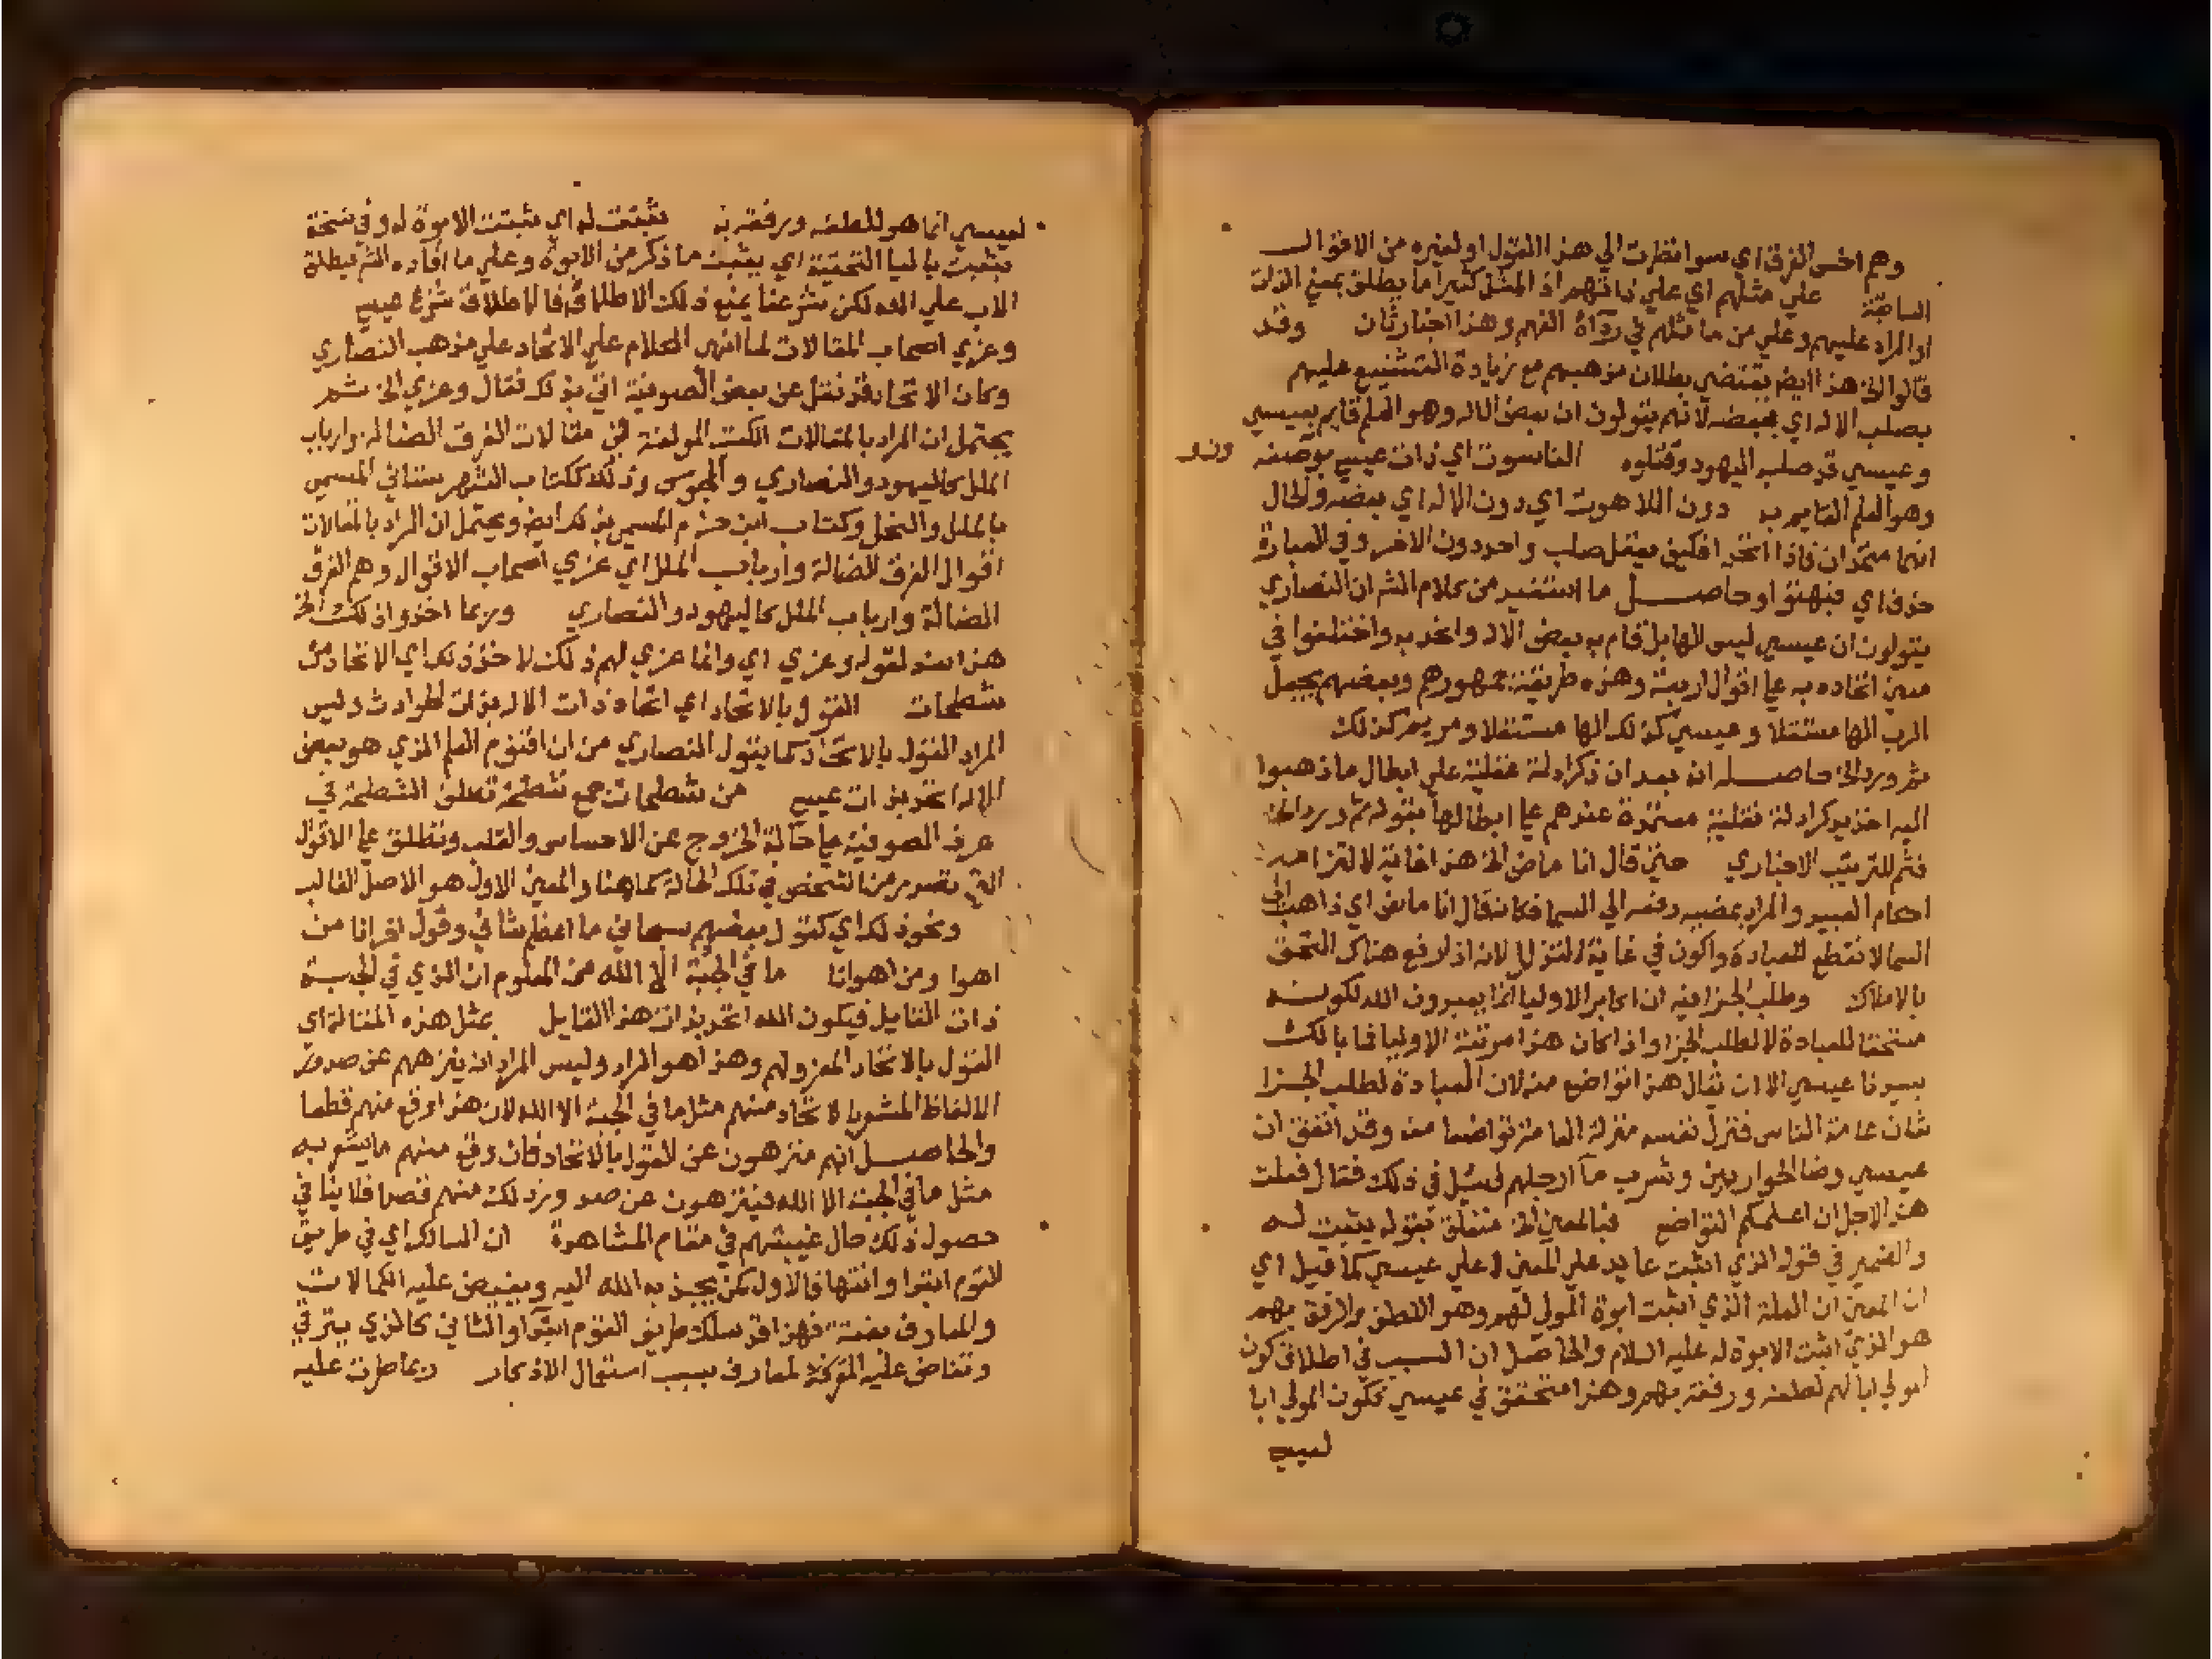 وهم اخس الفرق اي سوا نظرت الي هذا القول او لغيره من الاقوال
السابقة علي مثلهم اي علي ذاتهم اذ المثل كثيرا ما يطلق بمعني الذات
او المراد عليهم وعلي من ماثلهم في رداة الفهم وهذا اخبار ثان وقد
قالوا الخ هذا ايضا يقتضي بطلان مذهبهم مع زيادة التشنيع عليهم
بصلب الاله اي ببعضه لانهم يقولون ان بعض الاله وهو العلم قايم بعيسي
وعيسي قد صلبه اليهود وقتلوه الناسوت اي ذات عيسي بوصفه
وهو العلم القايم به دون اللاهوت اي دون الاله اي بعضه والحال
انهما متحدان فاذا اتحدا فكيف يعقل صلب واحد دون الاخر وفي العبارة
حذف اي فبهتوا وحاصل ما استفيد من كلام الش ان النصاري
يقولون ان عيسي ليس الها بل قام به بعض الاله واتحد به واختلفوا في
معني اتحاده به علي اقوال اربعة وهذه طريقة جمهورهم وبعضهم يجعل
الرب الها مستقلا وعيسي كذلك الها مستقلا ومريم كذلك
ثم ورد الخ حاصله ان بعد ان ذكر ادلة عقلية علي ابطال ما ذهبوا
اليه اخذ يذكر ادلة نقلية معتمدة عندهم علي ابطالها بقوله ثم ورد الخ
فثم للترتيب الاخباري حتي قال انا ماض الخ هذا غاية لالتزامه
احكام العبيد والمراد بمضيه رفعه الي السما فكانه قال انا ماض اي ذاهب الي
السما لانقطع للعبادة واكون في غاية التنزل لانه اذا رفع هناك التحق
بالاملاك وطلب الجزا فيه ان اكابر الاوليا انما يعبدون الله لكونه
مستحقا للعبادة لا لطلب الجزا واذا كان هذا مرتبة الاوليا فما بالك
بسيدنا عيسي الا ان يقال هذا تواضع منه لان العبادة لطلب الجزا
شان عامة الناس فنزل نفسه منزلة العامة تواضعا منه وقد اتفق ان
عيسي وضا الحواريين وشرب ما ارجلهم فسئل في ذلك فقال فعلت
هذا لاجل ان اعلمكم التواضع فبالمعني الخ متعلق بقوله يثبت له
والضمير في قوله الذي اثبت عايد علي المعني لا علي عيسي كما قيل اي
ان المعني ان العلة الذي اثبت ابوة المولي لهم وهو اللطف والرفق بهم
هو الذي اثبت الابوة له عليه السلام والحاصل ان السبب في اطلاق كون
المولي ابا لهم لطفه ورفقه بهم وهذا متحقق في عيسي فكون المولي ابا
لعيسي
لعيسي انما هو للطفه ورفقه به يثبت له اي يثبت الابوة له وفي نسخة
يثبت باليا التحتية اي يثبت ما ذكر من الابوة وعلي ما افاده الش فيطلق
الاب علي الله لكن شرعنا يمنع ذلك الاطلاق فالاطلاق شرع عيسي
وعزي اصحاب المقالات لما انهي الكلام علي الاتحاد علي مذهب النصاري
وكان الاتحاد قد نقل عن بعض الصوفية اتي بذلك فقال وعزي الخ ثم
يحتمل ان المراد بالمقالات الكتب المولفة في مقالات الفرق الضالة وارباب
الملل كاليهود والنصاري والمجوس وذلك ككتاب الشهرستاني المسمي
بالملل والنحل وكتاب ابن حزم المسمي بذلك ايضا ويحتمل ان المراد بالمقالات
اقوال الفرق الضالة وارباب الملل اي عزي اصحاب الاقوال وهم الفرق
الضالة وارباب الملل كاليهود والنصاري وربما اخذوا ذلك الخ
هذا سند لقوله وعزي اي وانما عزي لهم ذلك لاخذ ذلك اي الاتحاد من
شطحات القول بالاتحاد اي اتحاد ذات الاله بذات الحوادث وليس
المراد القول بالاتحاد كما يقول النصاري من ان اقنوم العلم الذي هو بعض
الاله اتحد بذات عيسي من شطحات جمع شطحة تطلق الشطحة في
عرف الصوفية علي حالة الخروج عن الاحساس والقلب وتطلق علي الاقوال
التي تصدر من الشخص في تلك الحالة كما هنا والمعني الاول هو الاصل الغالب
ونحو ذلك اي كقول بعضهم سبحاني ما اعظم شاني وقول اخر انا من
اهوا ومن اهوانا ما في الجبة الا الله من المعلوم ان الذي في الجبة
ذات القايل فيكون الله اتحد بذات هذا القايل بمثل هذه المقالة اي
القول بالاتحاد المعزو لهم وهذا هو المراد وليس المراد انه ينزههم عن صدور
الالفاظ المشوبة بالاتحاد منهم مثل ما في الجبة الا الله لان هذا وقع منهم قطعا
والحاصل انهم منزهون عن القول بالاتحاد فان وقع منهم ما يشوبه
مثل ما في الجبة الا الله فينزهون عن صدور ذلك منهم قصدا فلا ينافي
حصول ذلك حال غيبتهم في مقام المشاهدة ان السالك اي في طريق
القوم ابتدا وانتها فالاول كمن يجذبه الله اليه ويفيض عليه الكمالات
والمعارف بغتة فهذا قد سلك طريق القوم ابتدا والثاني كالذي يترقي
وتفاض عليه المعارف بسبب استعمال الاذكار ربما طرت عليه